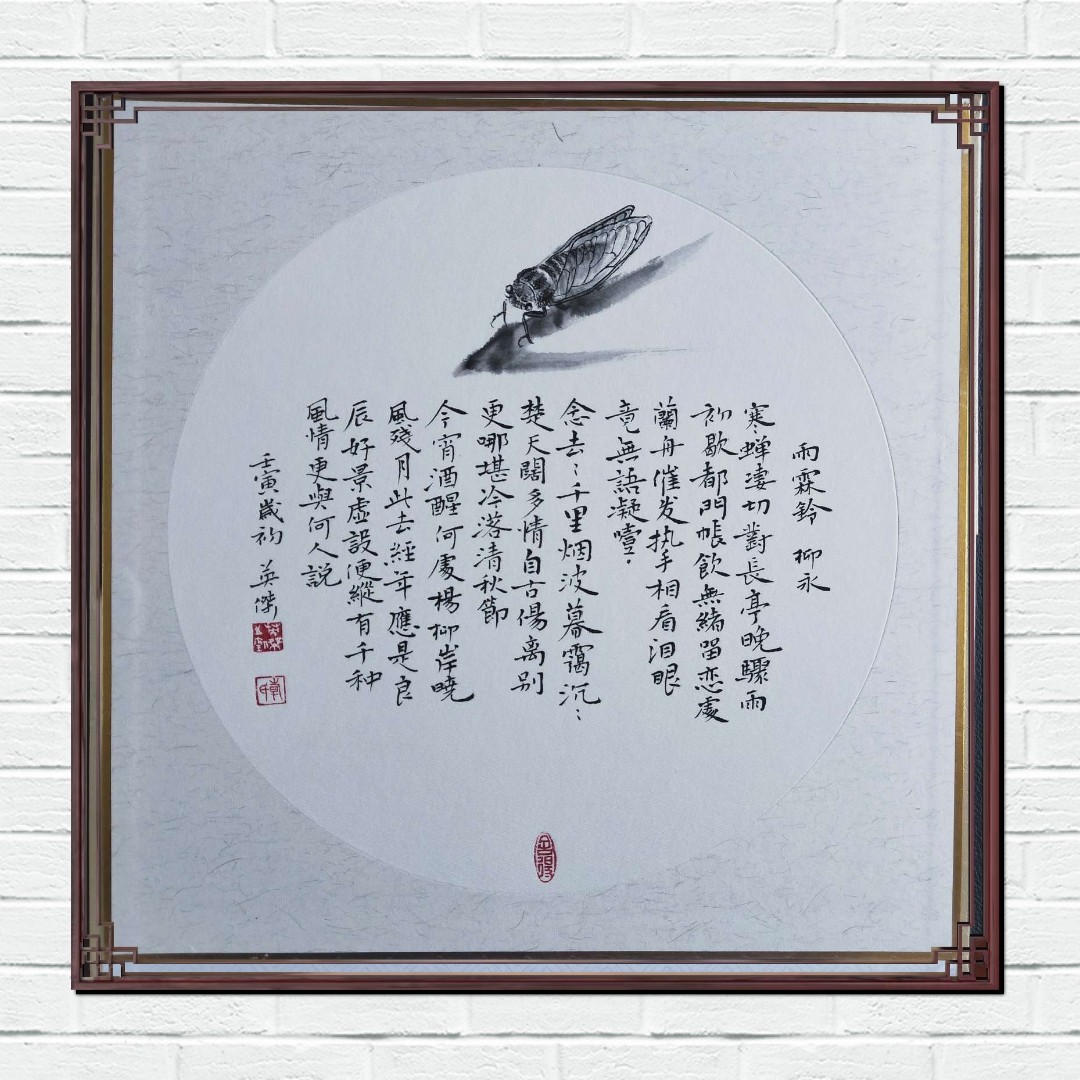 雨霖鈴 柳永
寒蟬凄切對長亭晚驟雨
初歇都門帳飲無緒留恋處
蘭舟催发执手相看泪眼
竟無語凝噎·
念去〻千里烟波暮靄沉〻
楚天闊多情自古傷离别
更哪堪冷落清秋節
今宵酒醒何處楊柳岸曉
風殘月此去經年應是良
辰好景虛設便縱有千种
風情更與何人説
壬寅歲初 英傑